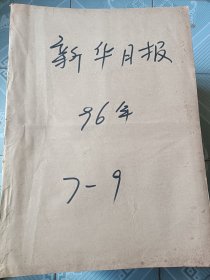 新华月报
96年
7-9